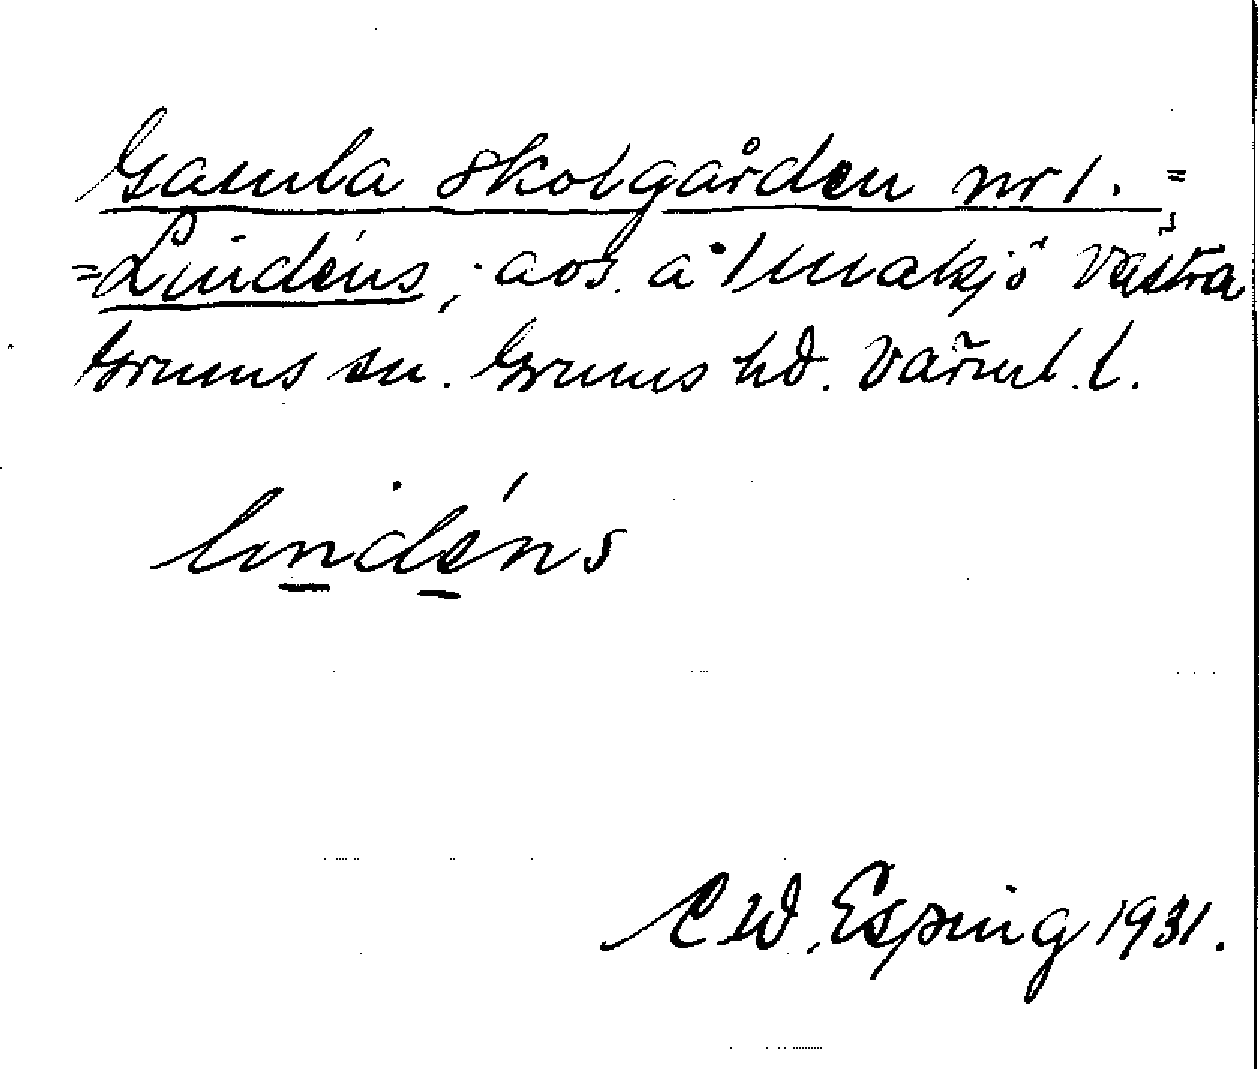 Gamla Skolgården nr 1. =
=Lindéns, aos. å Smakjö Västra
Grums sn. Grums hd. Värml. l.
lindéns
Ed. Esping 1931.